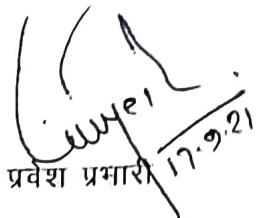 17.9.21
प्रवेश प्रभारी